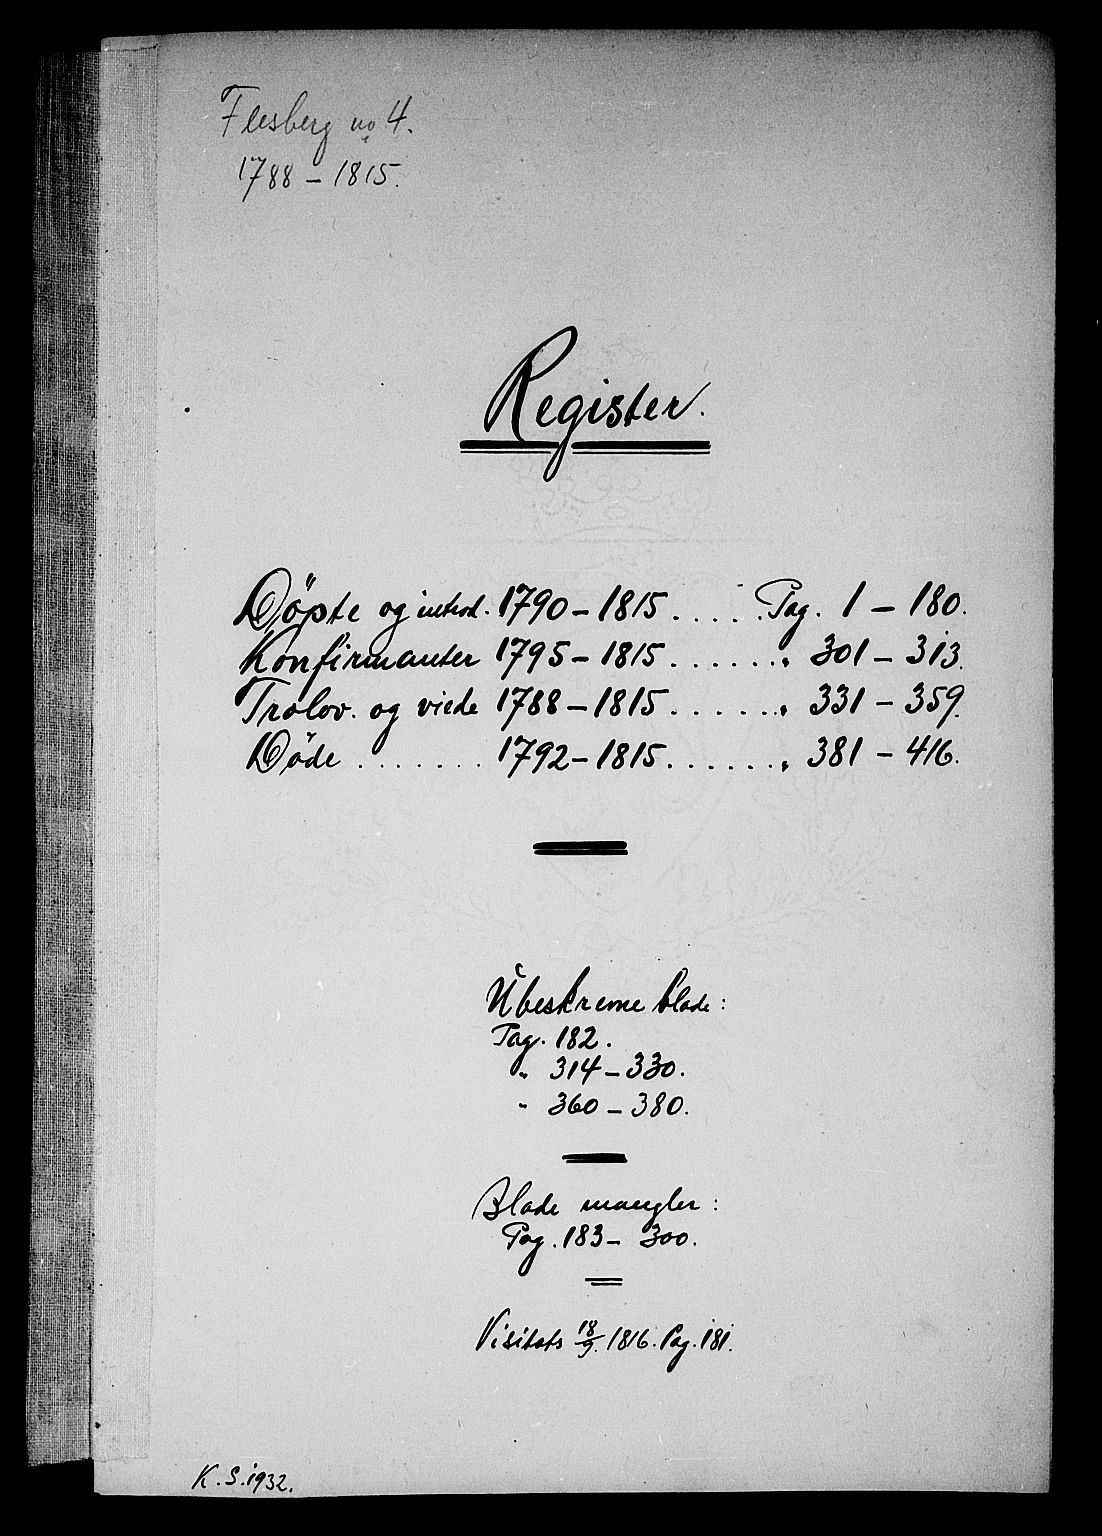 Flesberg no 4.
1788 – 1815.
Register.
Döpte og introd. 1790 – 1815 . . . . . Pag. 1 – 180.
Konfirmanter 1795 – 1815 . . . . . . „ 301 – 313.
Trolov. og viede 1788 – 1815 . . . . . . „ 331 – 359.
Döde . . . . . . . 1792 – 1815 . . . . . . „ 381 – 416.
Ubeskrevne blade:
Pag. 182.
„ 314 – 330.
„ 360 – 380.
Blade mangler:
Pag. 183 – 300.
Visitats 18/9. 1816. Pag. 181.
K. S. 1932.